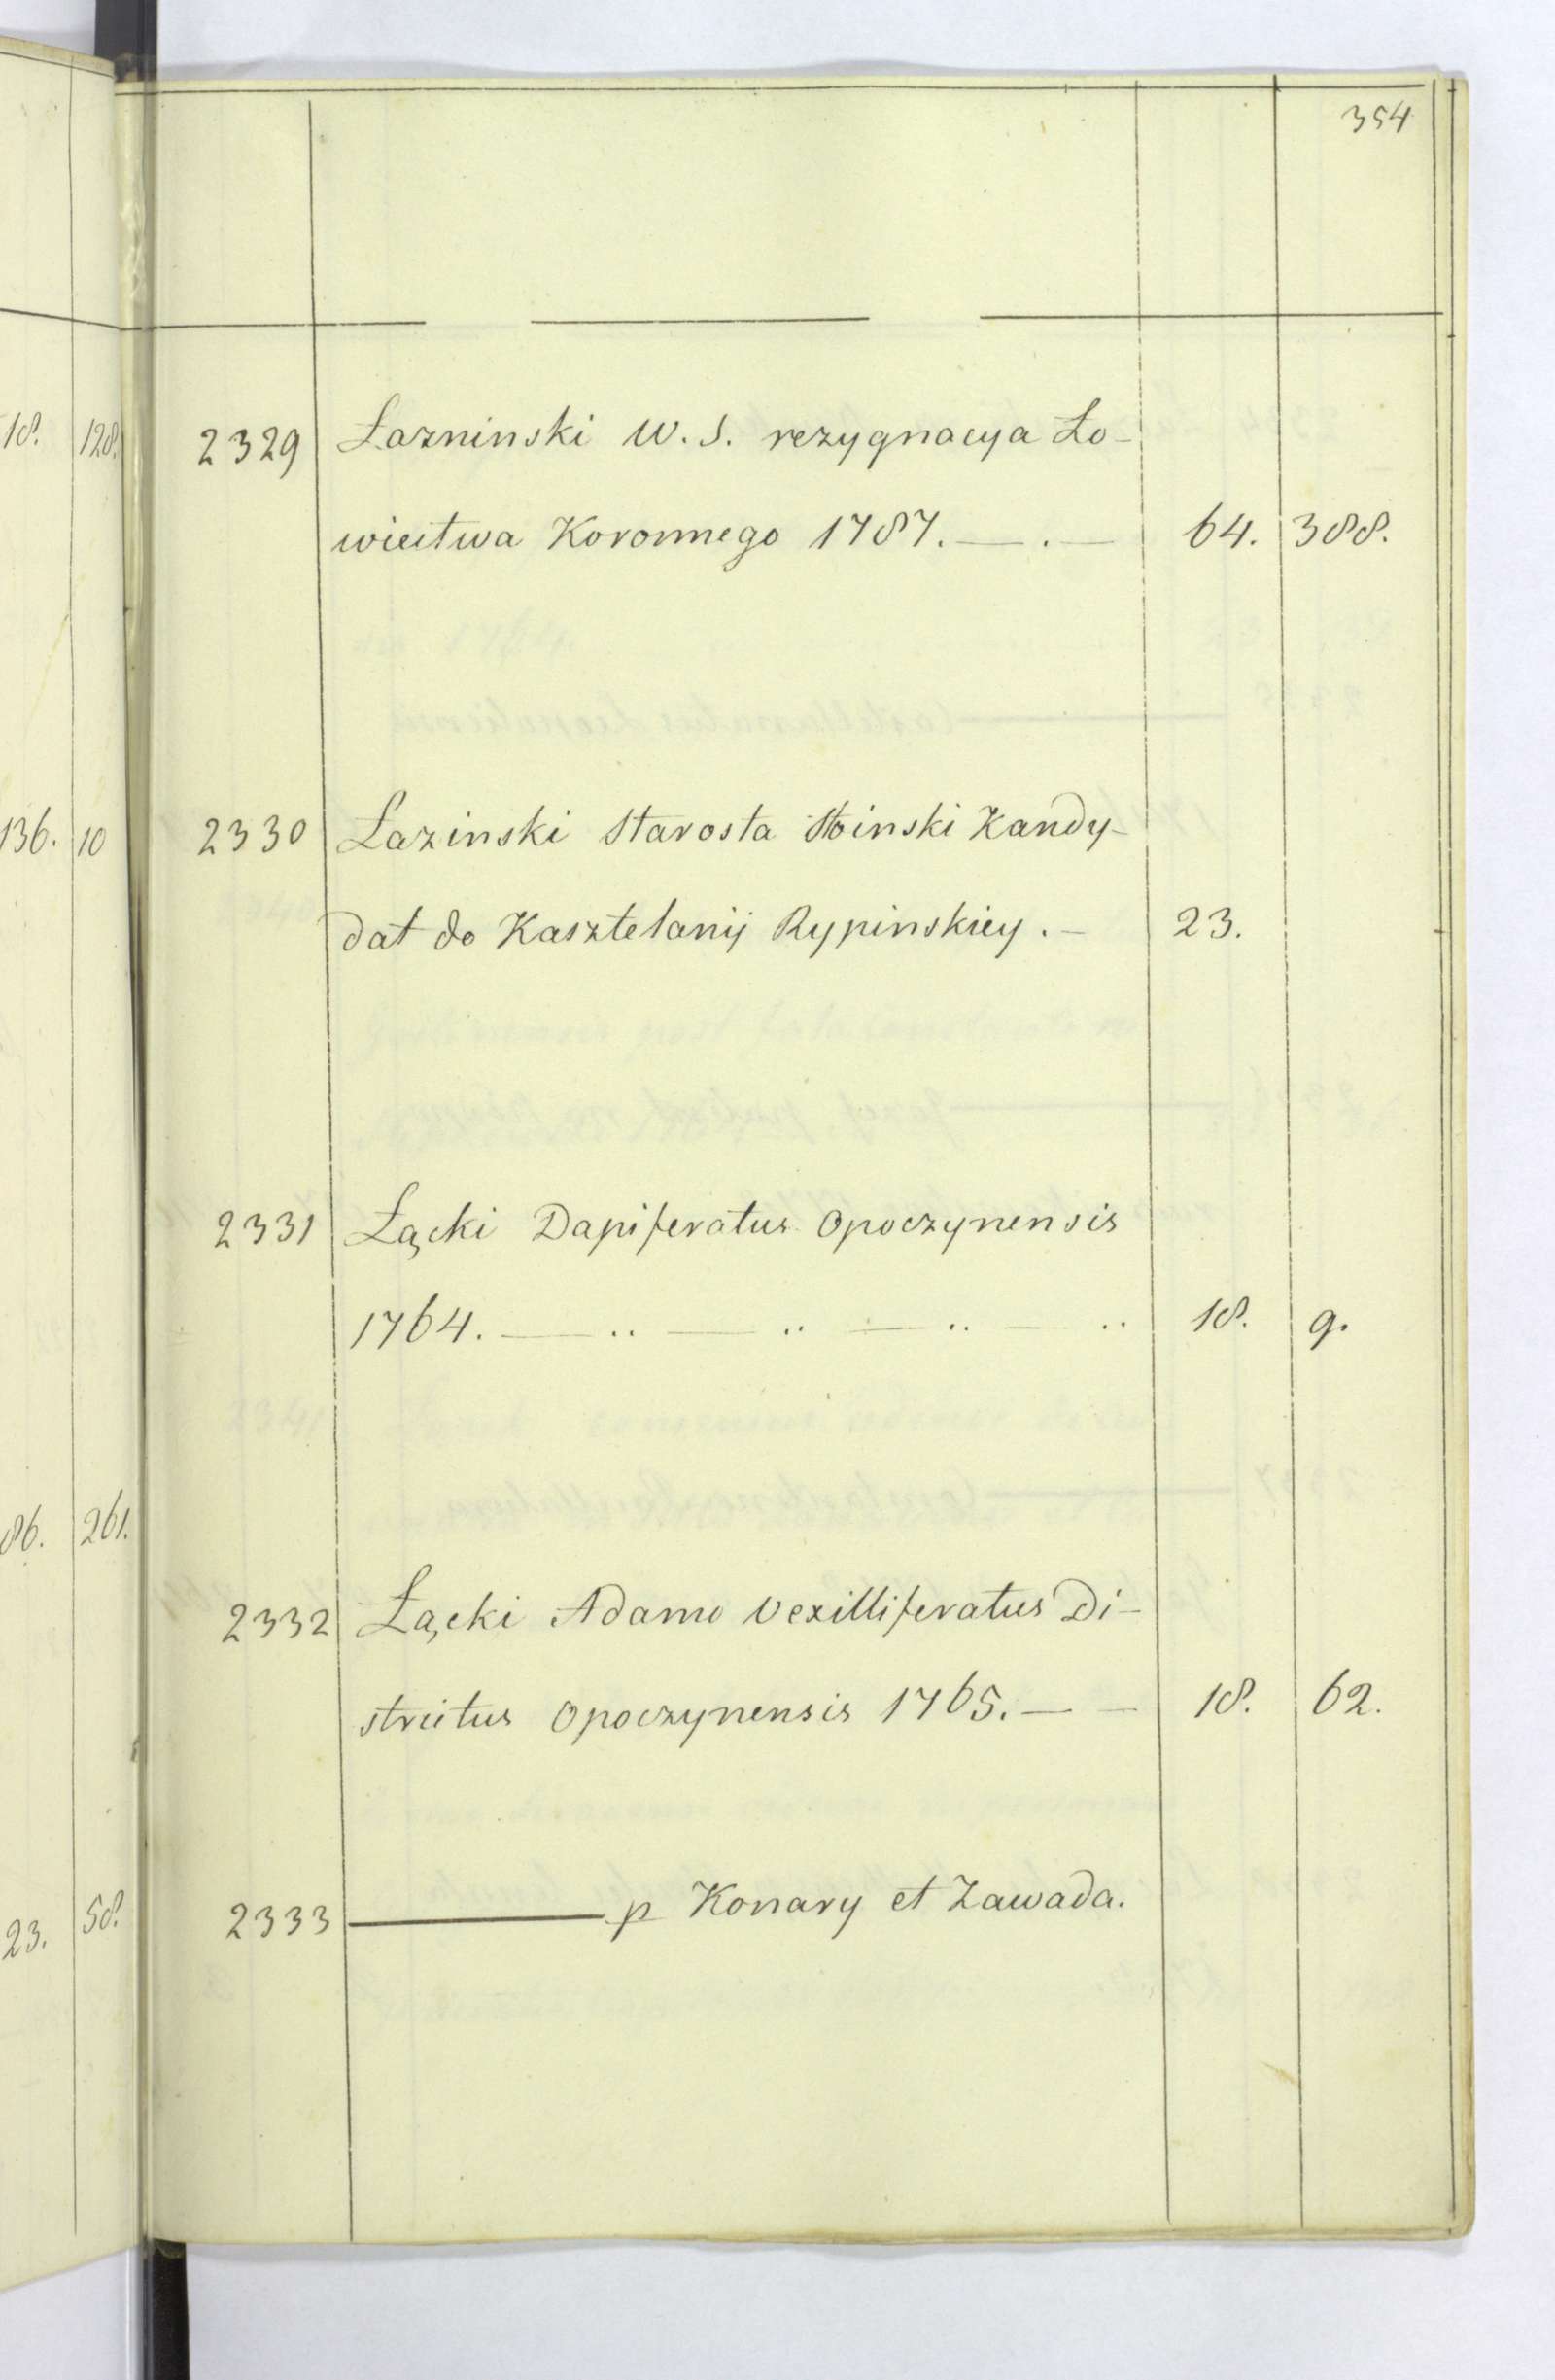 354
2329 Łazninski W. S. rezygnacya Ło-
wiectwa Koronnego 1787. — . — 64. 388.
2330 Łazinski Starosta Kandy-
dat do Kasztelanij Rypinskiey . — 23.
2331 Łącki Dapiferatus Opoczynensis
1764. — .. — .. — .. — .. 18. 9.
2332 Łącki Adamo Vexilliferatus Di-
strictus Opoczynensis 1765. — — 18. 62.
2333 ——— p Konary et Zawada.
18. 128.
136. 10
86. 261.
23. 58.